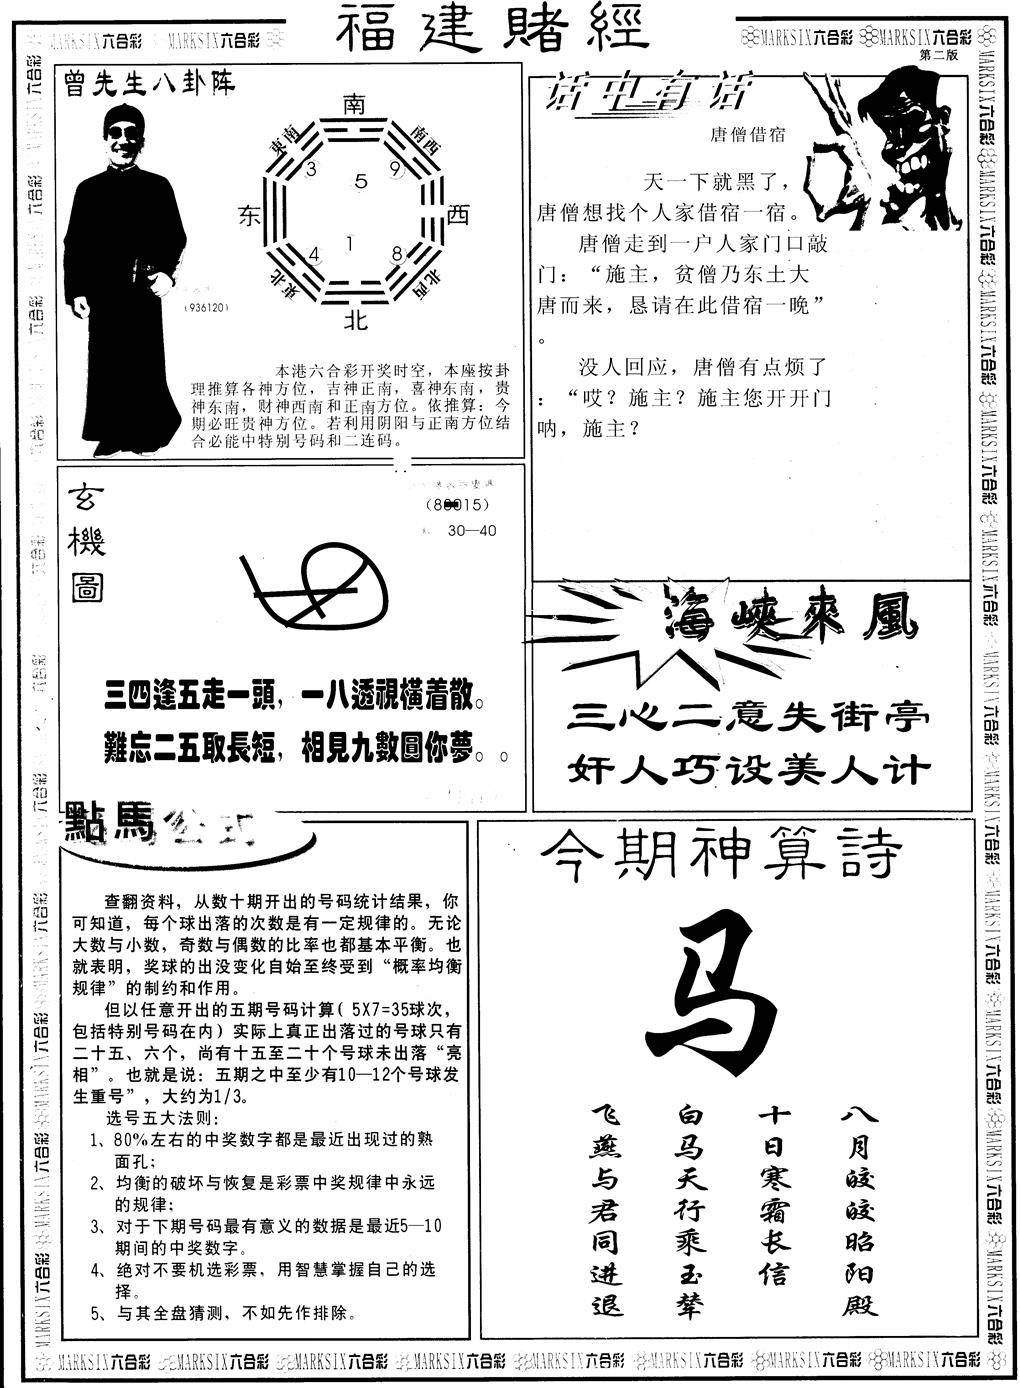 福建賭經
MARKSIX六合彩 MARKSIX六合彩
MARKSIX六合彩 MARKSIX六合彩
第二版
曾先生八卦阵
南
東南
南西
3
9
5
东
西
4
1
8
東北
北西
北
(936120)
本港六合彩开奖时空，本座按卦
理推算各神方位，吉神正南，喜神东南，贵
神东南，财神西南和正南方位。依推算：今
期必旺贵神方位。若利用阴阳与正南方位结
合必能中特别号码和二连码。
话中有话
唐僧借宿
天一下就黑了，
唐僧想找个人家借宿一宿。
唐僧走到一户人家门口敲
门：“施主，贫僧乃东土大
唐而来，恳请在此借宿一晚”
。
没人回应，唐僧有点烦了
：“哎？施主？施主您开开门
呐，施主？
玄機圖
30—40
三四逢五走一頭，一八透視橫着散。
難忘二五取長短，相見九數圓你夢。。
海峽來風
三心二意失街亭
奸人巧设美人计
點馬公式
查翻资料，从数十期开出的号码统计结果，你
可知道，每个球出落的次数是有一定规律的。无论
大数与小数，奇数与偶数的比率也都基本平衡。也
就表明，奖球的出没变化自始至终受到“概率均衡
规律”的制约和作用。
但以任意开出的五期号码计算( 5X7=35球次，
包括特别号码在内）实际上真正出落过的号球只有
二十五、六个，尚有十五至二十个号球未出落“亮
相”。也就是说：五期之中至少有10—12个号球发
生重号”，大约为1/3。
选号五大法则：
1、80%左右的中奖数字都是最近出现过的熟
面孔；
2、均衡的破坏与恢复是彩票中奖规律中永远
的规律；
3、对于下期号码最有意义的数据是最近5—10
期间的中奖数字。
4、绝对不要机选彩票，用智慧掌握自己的选
择。
5、与其全盘猜测，不如先作排除。
今期神算詩
马
八月皎皎昭阳殿
十日寒霜长信
白马天行乘玉辇
飞燕与君同进退
MARKSIX六合彩 MARKSIX六合彩 MARKSIX六合彩 MARKSIX六合彩 MARKSIX六合彩 MARKSIX六合彩 MARKSIX六合彩 MARKSIX六合彩